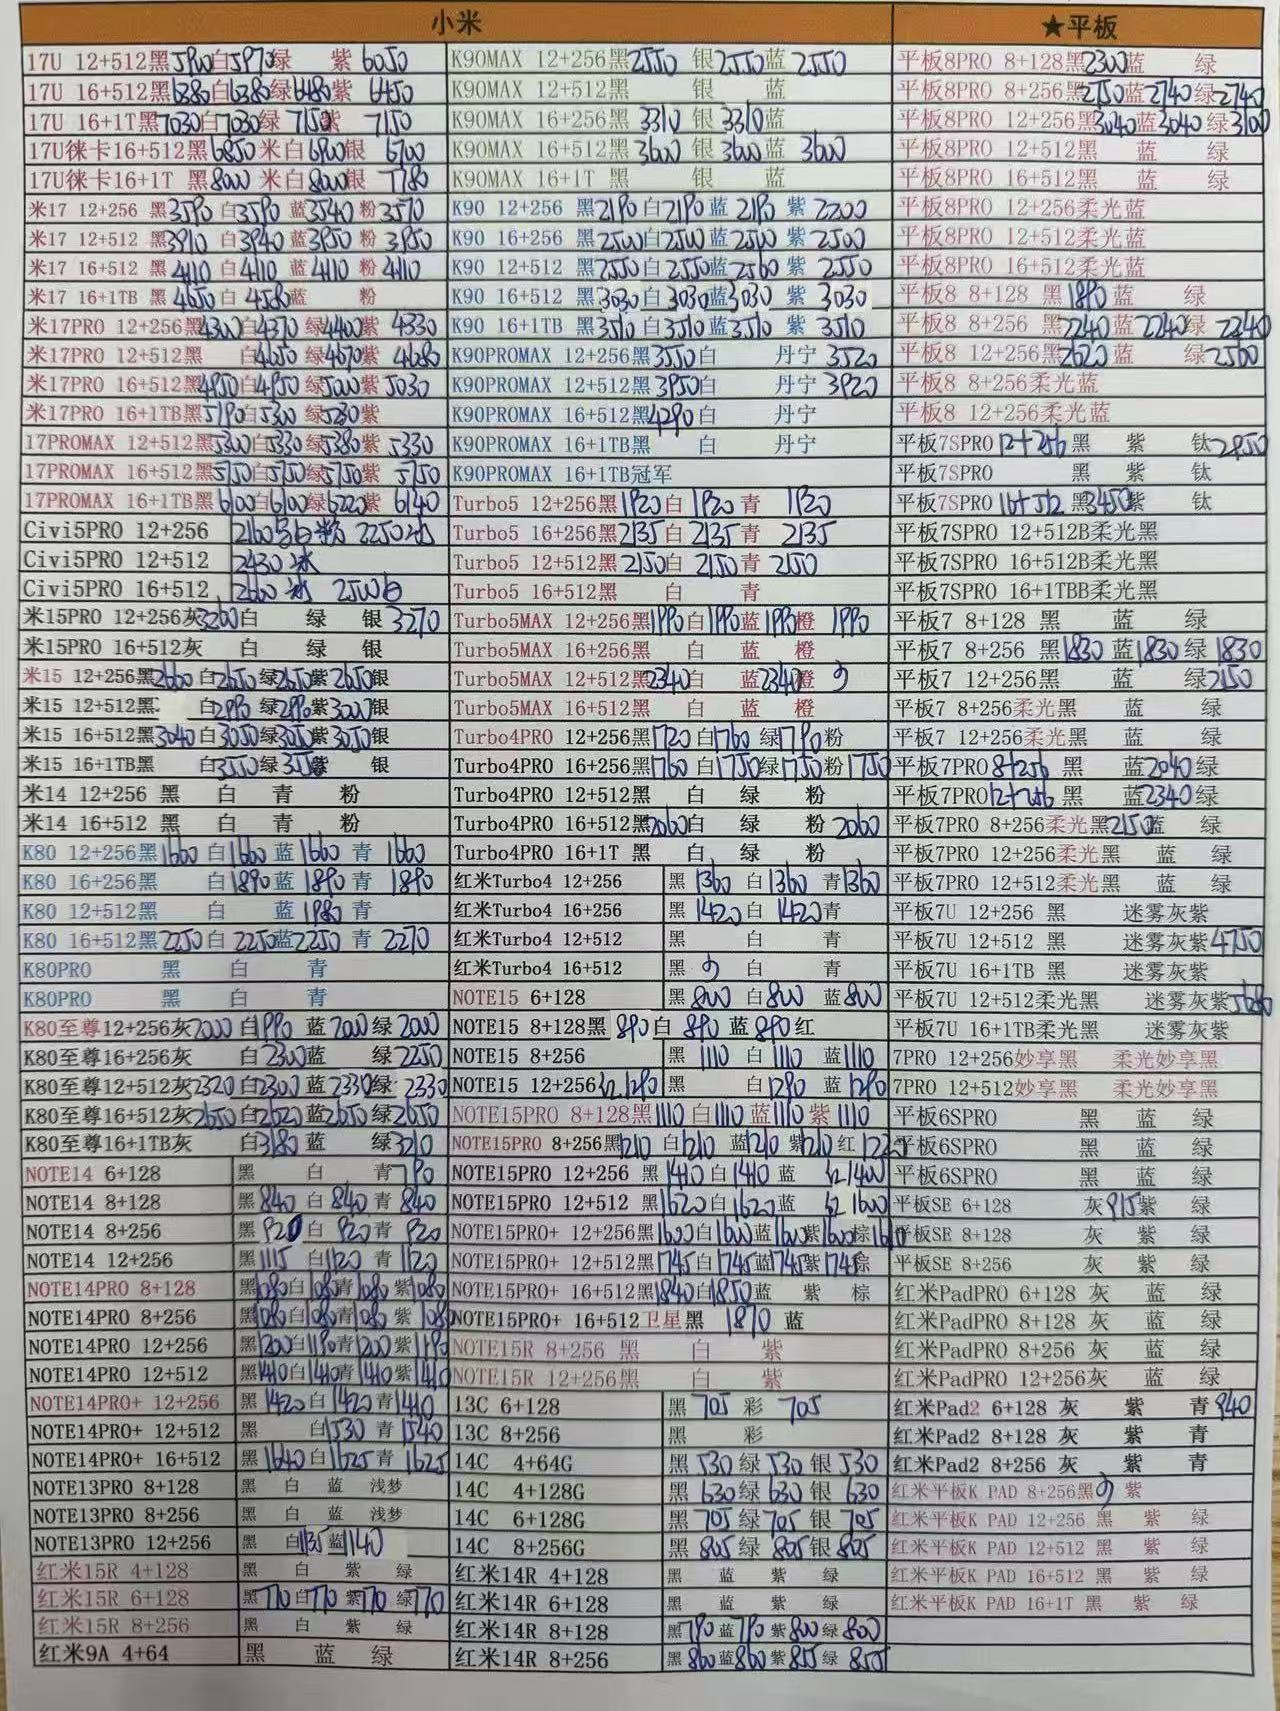 小米
17U 12+512黑5910白5970绿 紫6050
17U 16+512黑6380白6380绿6480紫 6450
17U 16+1T黑7030白7030绿 7150紫 7150
17U徕卡16+512黑6850 米白6900银 6700
17U徕卡16+1T 黑8000 米白8000银 7780
米17 12+256 黑3590 白3590 蓝3540 粉3570
米17 12+512 黑3910 白3940 蓝3950 粉3950
米17 16+512 黑4110 白4110 蓝4110 粉4110
米17 16+1TB 黑4650 白4580蓝 粉
米17PRO 12+256黑4300白4370 绿4400紫 4330
米17PRO 12+512黑 白4650 绿4670紫 4680
米17PRO 16+512黑4950白4950绿5000紫5030
米17PRO 16+1TB黑5190白5300绿5230紫
17PROMAX 12+512黑5300白5330绿5380紫 5330
17PROMAX 16+512黑5750白5750绿5750紫 5750
17PROMAX 16+1TB黑6100白6100绿6220紫 6140
Civi5PRO 12+256 2160 白粉 2250冰
Civi5PRO 12+512 2430 冰
Civi5PRO 16+512 2600 冰 2500白
米15PRO 12+256灰3200白 绿 银3270
米15PRO 16+512灰 白 绿 银
米15 12+256黑2660 白2650绿2650紫2650银
米15 12+512黑 白2990绿2990紫3000银
米15 16+512黑3040白3050绿3050紫3050银
米15 16+1TB黑 白3550绿3550紫 银
米14 12+256 黑 白 青 粉
米14 16+512 黑 白 青 粉
K80 12+256黑1660 白1660蓝 1660 青 1660
K80 16+256黑 白1890蓝 1890 青 1890
K80 12+512黑 白 蓝1980青
K80 16+512黑2250白 2250蓝2250 青 2270
K80PRO 黑 白 青
K80PRO 黑 白 青
K80至尊12+256灰2000 白1990 蓝2000绿2000
K80至尊16+256灰 白2300蓝 绿2250
K80至尊12+512灰2320白2300蓝2330绿2330
K80至尊16+512灰2650白2620蓝2650绿2650
K80至尊16+1TB灰 白3180蓝 绿3210
NOTE14 6+128 黑 白 青790
NOTE14 8+128 黑840 白840青 840
NOTE14 8+256 黑920白 920青 920
NOTE14 12+256 黑1115 白1120青 1120
NOTE14PRO 8+128 黑1080白1080青1080紫1080
NOTE14PRO 8+256 黑1080白1080青1080 紫1080
NOTE14PRO 12+256 黑1200白1190青1200紫1190
NOTE14PRO 12+512 黑1410白1410青1410紫1410
NOTE14PRO+ 12+256 黑1420白1420青1410
NOTE14PRO+ 12+512 黑 白1530青1540
NOTE14PRO+ 16+512 黑1640白1625青1625
NOTE13PRO 8+128 黑 白 蓝 浅梦
NOTE13PRO 8+256 黑 白 蓝 浅梦
NOTE13PRO 12+256 黑 白1135蓝1140
红米15R 4+128 黑 白 紫 绿
红米15R 6+128 黑770白770紫770绿770
红米15R 8+256 黑 白 紫 绿
红米9A 4+64 黑 蓝 绿
K90MAX 12+256黑2550 银2550蓝 2550
K90MAX 12+512黑 银 蓝
K90MAX 16+256黑 3310 银3310蓝
K90MAX 16+512黑3600 银3600蓝 3600
K90MAX 16+1T 黑 银 蓝
K90 12+256 黑2190白2190蓝 2190 紫 2200
K90 16+256 黑2500白2500蓝2500 紫 2500
K90 12+512 黑2550白2550蓝2560 紫 2550
K90 16+512 黑3030白3030蓝3030 紫 3030
K90 16+1TB 黑3510白3510蓝3510 紫 3510
K90PROMAX 12+256黑3550白 丹宁 3520
K90PROMAX 12+512黑3950白 丹宁 3920
K90PROMAX 16+512黑4290白 丹宁
K90PROMAX 16+1TB黑 白 丹宁
K90PROMAX 16+1TB冠军
Turbo5 12+256黑1920白 1920青 1920
Turbo5 16+256黑2135白 2135青 2135
Turbo5 12+512黑2150白2150青 2150
Turbo5 16+512黑 白 青
Turbo5MAX 12+256黑1990白1990蓝1990橙 1990
Turbo5MAX 16+256黑 白 蓝 橙
Turbo5MAX 12+512黑2340白 蓝2340橙
Turbo5MAX 16+512黑 白 蓝 橙
Turbo4PRO 12+256黑1720白1760 绿1790粉
Turbo4PRO 16+256黑1760 白1750绿1750粉1750
Turbo4PRO 12+512黑 白 绿 粉
Turbo4PRO 16+512黑2060白 绿 粉2060
Turbo4PRO 16+1T 黑 白 绿 粉
红米Turbo4 12+256 黑 1360 白1360 青1360
红米Turbo4 16+256 黑 1420白 1420青
红米Turbo4 12+512 黑 白 青
红米Turbo4 16+512 黑 白 青
NOTE15 6+128 黑 800 白800 蓝800
NOTE15 8+128黑 890白 890 蓝890红
NOTE15 8+256 黑 1110 白1110 蓝1110
NOTE15 12+256红1290 黑 白1290 蓝1290
NOTE15PRO 8+128黑1110白1110蓝1110紫1110
NOTE15PRO 8+256黑1210白1210 蓝1210紫1210红
NOTE15PRO 12+256 黑1410白1410蓝 红1400
NOTE15PRO 12+512 黑1620白1620蓝 红1600
NOTE15PRO+ 12+256黑1600白1600蓝1600紫1600棕1610
NOTE15PRO+ 12+512黑1745白1745蓝1745紫1745棕
NOTE15PRO+ 16+512黑1840白1850蓝 紫 棕
NOTE15PRO+ 16+512卫星黑 1870 蓝
NOTE15R 8+256 黑 白 紫
NOTE15R 12+256黑 白 紫
13C 6+128 黑 705 彩 705
13C 8+256 黑 彩
14C 4+64G 黑530绿530银530
14C 4+128G 黑630绿630银 630
14C 6+128G 黑705绿705银705
14C 8+256G 黑805绿 805银805
红米14R 4+128 黑 蓝 紫 绿
红米14R 6+128 黑 蓝 紫 绿
红米14R 8+128 黑790蓝790紫800绿800
红米14R 8+256 黑860蓝860紫855绿 855
★平板
平板8PRO 8+128黑2300蓝 绿
平板8PRO 8+256黑2750蓝2740绿2740
平板8PRO 12+256黑3040蓝3040绿3100
平板8PRO 12+512黑 蓝 绿
平板8PRO 16+512黑 蓝 绿
平板8PRO 12+256柔光蓝
平板8PRO 12+512柔光蓝
平板8PRO 16+512柔光蓝
平板8 8+128 黑1890蓝 绿
平板8 8+256 黑2240蓝2240绿 2240
平板8 12+256黑2620蓝 绿2560
平板8 8+256柔光蓝
平板8 12+256柔光蓝
平板7SPRO 12+256黑 紫 钛2950
平板7SPRO 黑 紫 钛
平板7SPRO 16+512 黑3450紫 钛
平板7SPRO 12+512B柔光黑
平板7SPRO 16+512B柔光黑
平板7SPRO 16+1TBB柔光黑
平板7 8+128 黑 蓝 绿
平板7 8+256 黑1830 蓝1830绿1830
平板7 12+256黑 蓝 绿2150
平板7 8+256柔光黑 蓝 绿
平板7 12+256柔光黑 蓝 绿
平板7PRO8+256 黑 蓝2040绿
平板7PRO12+256 黑 蓝2340绿
平板7PRO 8+256柔光黑2150蓝 绿
平板7PRO 12+256柔光黑 蓝 绿
平板7PRO 12+512柔光黑 蓝 绿
平板7U 12+256 黑 迷雾灰紫
平板7U 12+512 黑 迷雾灰紫4750
平板7U 16+1TB 黑 迷雾灰紫
平板7U 12+512柔光黑 迷雾灰紫5680
平板7U 16+1TB柔光黑 迷雾灰紫
7PRO 12+256妙享黑 柔光妙享黑
7PRO 12+512妙享黑 柔光妙享黑
平板6SPRO 黑 蓝 绿
平板6SPRO 黑 蓝 绿
平板6SPRO 黑 蓝 绿
平板SE 6+128 灰915紫 绿
平板SE 8+128 灰 紫 绿
平板SE 8+256 灰 紫 绿
红米PadPRO 6+128 灰 蓝 绿
红米PadPRO 8+128 灰 蓝 绿
红米PadPRO 8+256 灰 蓝 绿
红米PadPRO 12+256灰 蓝 绿
红米Pad2 6+128 灰 紫 青940
红米Pad2 8+128 灰 紫 青
红米Pad2 8+256 灰 紫 青
红米平板K PAD 8+256黑 紫
红米平板K PAD 12+256 黑 紫 绿
红米平板K PAD 12+512 黑 紫 绿
红米平板K PAD 16+512 黑 紫 绿
红米平板K PAD 16+1T 黑 紫 绿